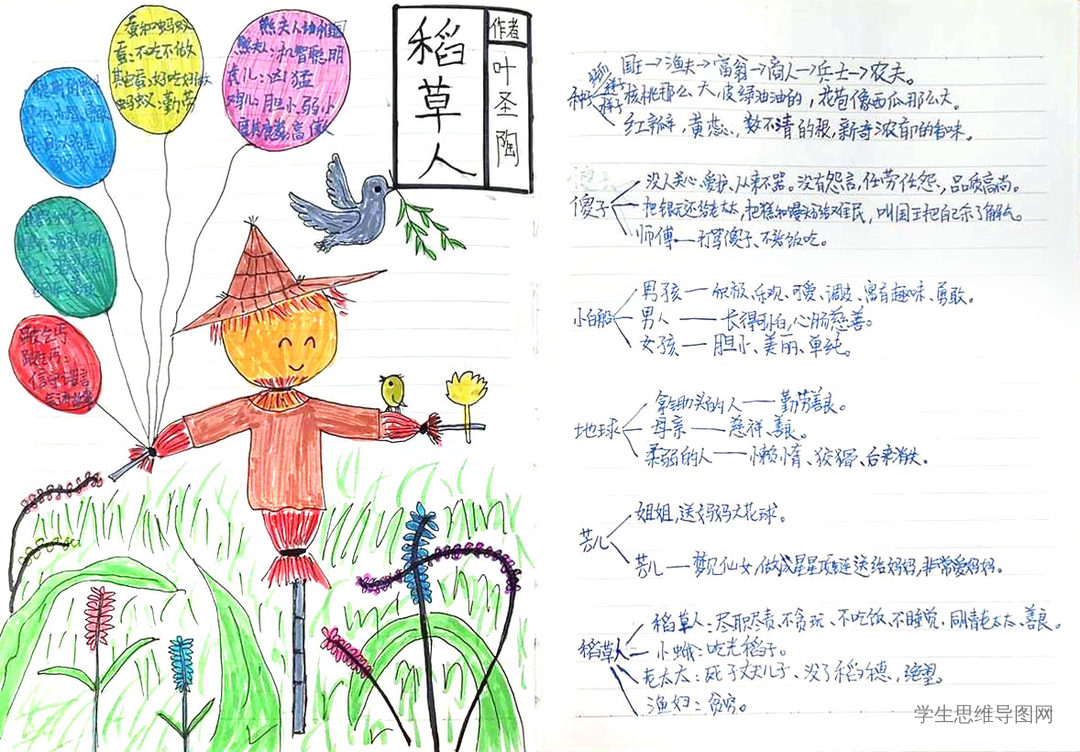 稻草人
作者
叶圣陶
蚕和蚂蚁
蚕:不吃不做
蚂蚁:勤劳
熊夫人幼稚园
熊夫人:机智聪明
虎儿:凶猛
鸡儿:胆小弱小
跛乞丐
跛乞丐:
信守诺言
国王→渔夫→富翁→商人→兵士→农夫。
种子
核桃那么大,皮绿油油的,花苞像西瓜那么大。
红郭郭,黄蕊,数不清的瓣,新奇浓郁的香味。
没人关心、爱护,从来不哭。没有怨言,任劳任怨,品质高尚。
傻子
把银元还给老太太,把糕和馒头给难民,叫国王把自己杀了解气。
师傅—打骂傻子、不给饭吃。
男孩—积极、乐观、可爱、调皮、富有趣味、勇敢。
小白船
男人—长得可怕,心肠慈善。
女孩—胆小、美丽、单纯。
拿锄头的人—勤劳善良。
地球
母亲—慈祥、善良。
柔弱的人—懒惰、狡猾、后来消失。
姐姐,送妈妈大花球。
芳儿
芳儿—梦见仙女,做成星星项链送给妈妈,非常爱妈妈。
稻草人:尽职尽责、不贪玩、不吃饭、不睡觉,同情老太太、善良。
稻草人
小蛾:吃光稻子。
老太太:死了丈夫儿子、没了稻穗,绝望。
渔妇:贫穷。
学生思维导图网